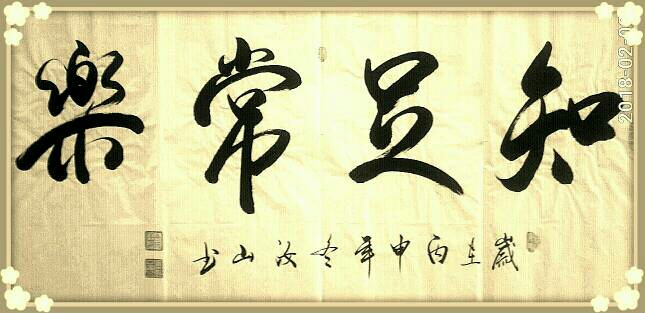 知足常樂
歲在丙申年冬汝山书
2018-02-0